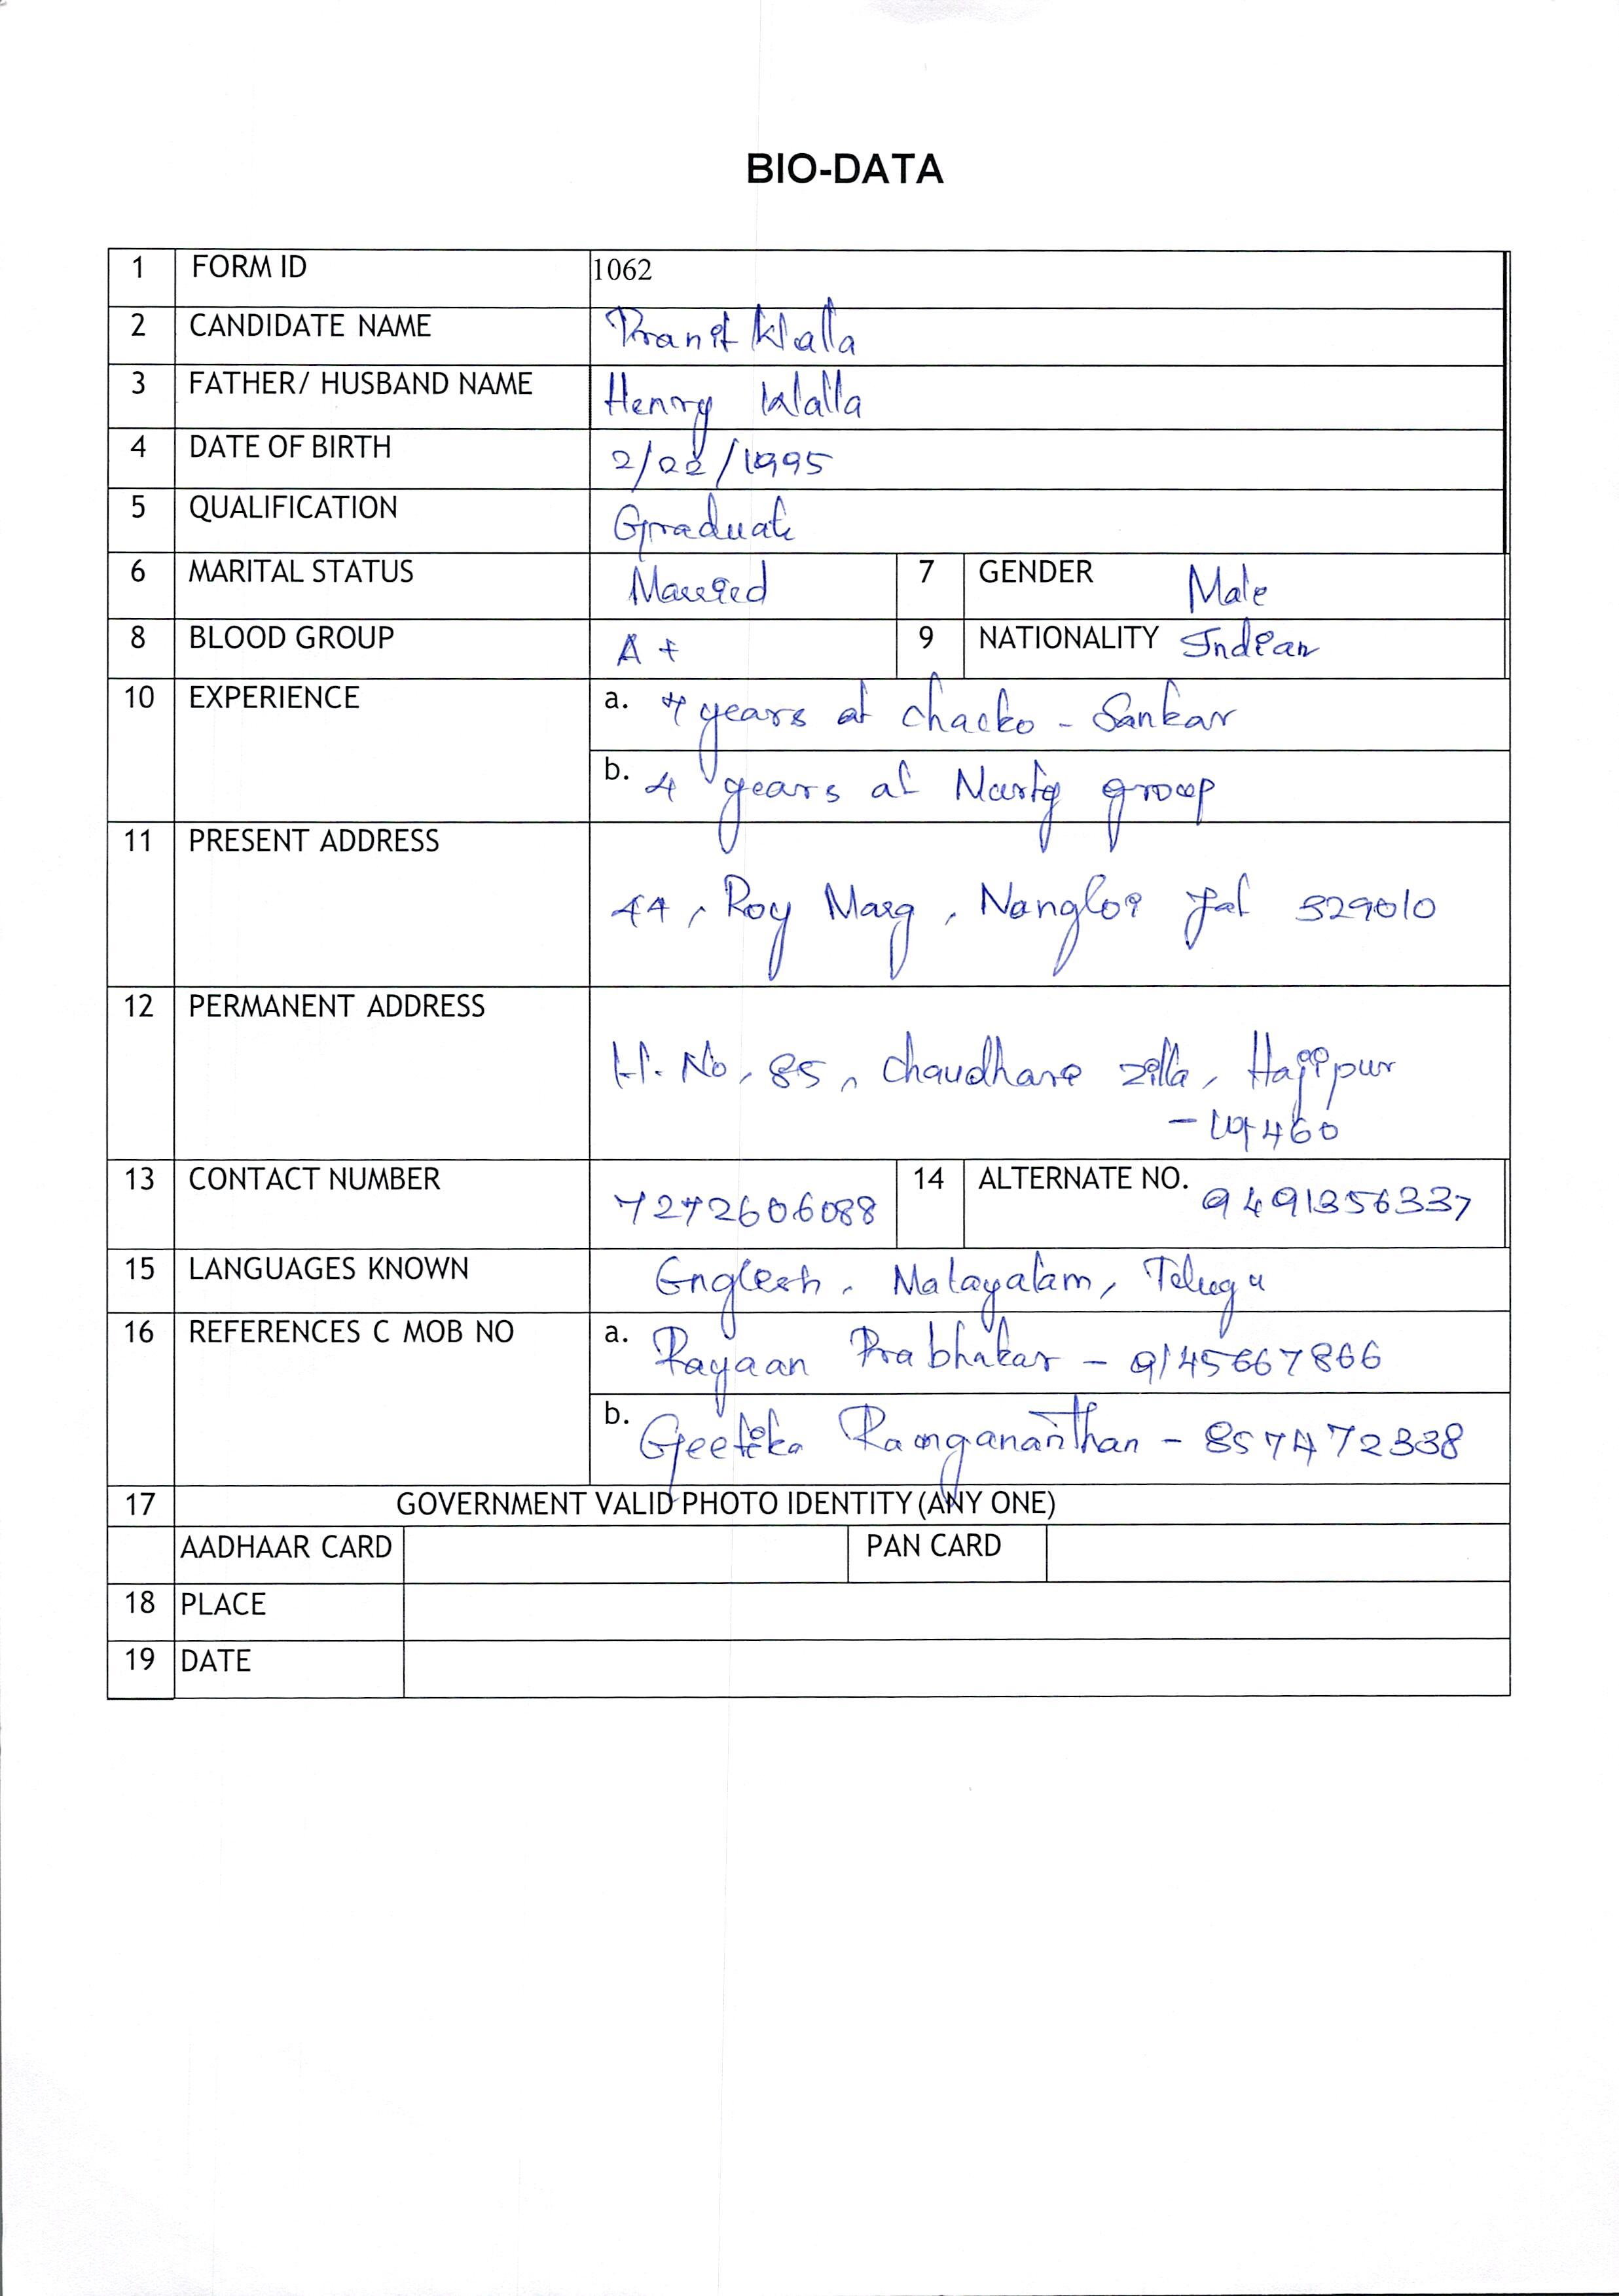 BIO-DATA
1 FORM ID 1062
2 CANDIDATE NAME Pranit Walla
3 FATHER/ HUSBAND NAME Henry Walla
4 DATE OF BIRTH 2/02/1995
5 QUALIFICATION Graduate
6 MARITAL STATUS Married 7 GENDER Male
8 BLOOD GROUP A+ 9 NATIONALITY Indian
10 EXPERIENCE a. 7 years at Chacko - Sankar
b. 4 years at group
11 PRESENT ADDRESS
44, Roy Marg, Nangloi Jat 529010
12 PERMANENT ADDRESS
H. No, 85, Chaudhari zilla, Hajipur
13 CONTACT NUMBER 7272606088 14 ALTERNATE NO. 9491356337
15 LANGUAGES KNOWN English, Malayalam, Telugu
16 REFERENCES C MOB NO a. Rayaan Prabhakar - 9145667866
b. Geetika - 8574472338
17 GOVERNMENT VALID PHOTO IDENTITY (ANY ONE)
AADHAAR CARD PAN CARD
18 PLACE
19 DATE